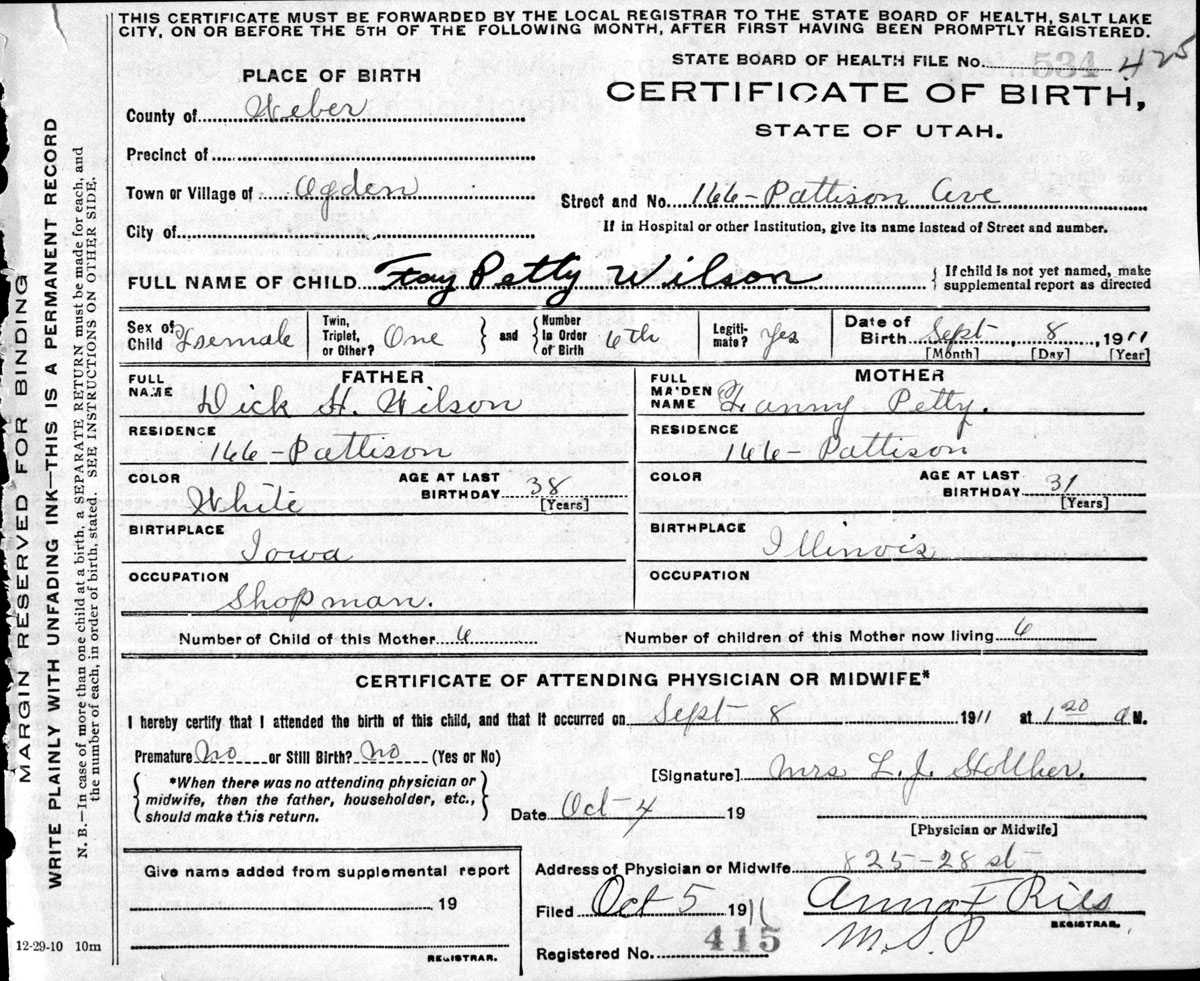 THIS CERTIFICATE MUST BE FORWARDED BY THE LOCAL REGISTRAR TO THE STATE BOARD OF HEALTH, SALT LAKE
CITY, ON OR BEFORE THE 5TH OF THE FOLLOWING MONTH, AFTER FIRST HAVING BEEN PROMPTLY REGISTERED.
STATE BOARD OF HEALTH FILE No. 534 425
PLACE OF BIRTH
CERTIFICATE OF BIRTH,
STATE OF UTAH.
County of Weber
Precinct of
Town or Village of Ogden
Street and No. 166-Pattison Ave
City of
If in Hospital or other Institution, give its name instead of Street and number.
FULL NAME OF CHILD Fay Petty Wilson { If child is not yet named, make
supplemental report as directed
Sex of Child Female
Twin, Triplet, or Other? One } and { Number in Order of Birth 6th
Legitimate? Yes
Date of Birth Sept 8, 1911
[Month] [Day] [Year]
FATHER
FULL NAME Dick H. Wilson
RESIDENCE
166-Pattison
COLOR White AGE AT LAST BIRTHDAY 38 [Years]
BIRTHPLACE
Iowa
OCCUPATION
Shopman.
MOTHER
FULL MAIDEN NAME Fanny Petty.
RESIDENCE
166-Pattison
COLOR AGE AT LAST BIRTHDAY 31 [Years]
BIRTHPLACE
Illinois
OCCUPATION
Number of Child of this Mother 6 Number of children of this Mother now living 6
CERTIFICATE OF ATTENDING PHYSICIAN OR MIDWIFE*
I hereby certify that I attended the birth of this child, and that it occurred on Sept 8 1911 at 1 20 a M.
Premature No or Still Birth? No (Yes or No)
{ *When there was no attending physician or
midwife, then the father, householder, etc.,
should make this return. }
[Signature] Mrs L. J.
Date Oct-4 19
[Physician or Midwife]
Give name added from supplemental report
19
REGISTRAR.
Address of Physician or Midwife 825-28 st
Filed Oct 5 1911 Anna F Ries
M.S.P
REGISTRAR.
Registered No. 415
12-29-10 10m
MARGIN RESERVED FOR BINDING
WRITE PLAINLY WITH UNFADING INK—THIS IS A PERMANENT RECORD
N. B.—In case of more than one child at a birth, a SEPARATE RETURN must be made for each, and
the number of each, in order of birth, stated. SEE INSTRUCTIONS ON OTHER SIDE.